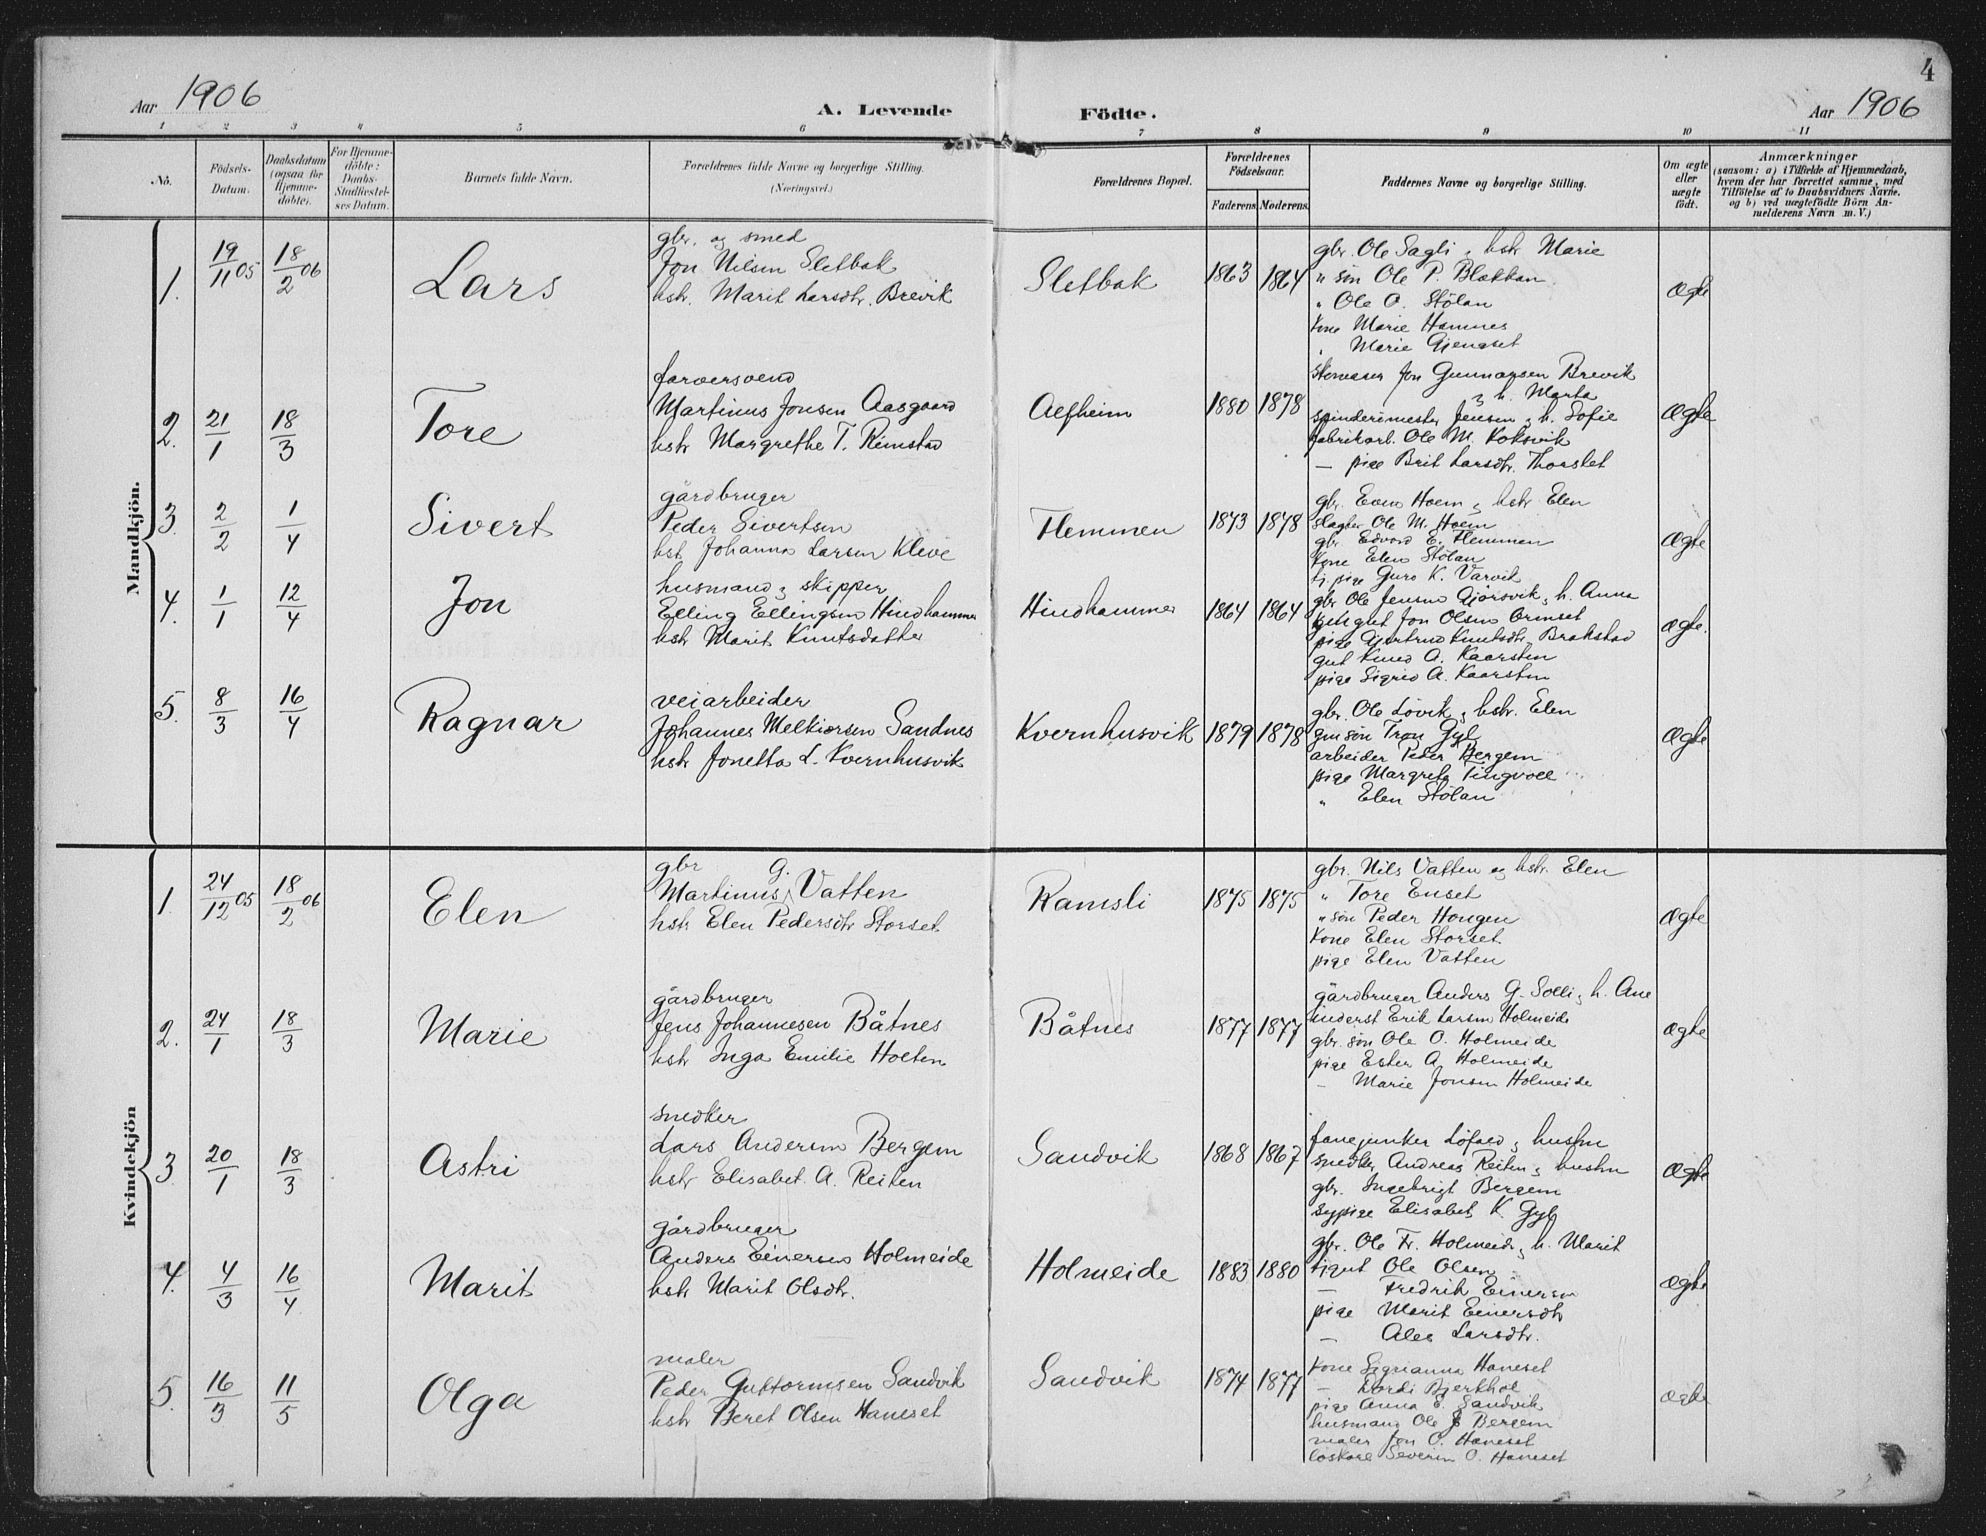 4
Aar 1906 A. Levende Födte. Aar 1906
1 2 3 4 5 6 7 8 9 10 11
No. Födsels-Datum. Daabsdatum (ogsaa for Hjemme-döbte). For Hjemme-döbte: Daabs-Stadfæstel-ses Datum. Barnets fulde Navn. Forældrenes fulde Navne og borgerlige Stilling. (Næringsvei.) Forældrenes Bopæl. Forældrenes Födselsaar. Faderens Moderens Faddernes Navne og borgerlige Stilling. Om ægte eller uægte födt. Anmærkninger (saasom: a) i Tilfælde af Hjemmedaab, hvem der har forrettet samme, med Tilföielse af to Daabsvidners Navne, og b) ved uægtefödte Börn An-melderens Navn m. V.)
Mandkjön.
1. 19/11 05 18/2 06 Lars
gbr. og smed
Jon Nilsen Sletbak
hstr. Marit Larsdtr. Brevik
Sletbak 1863 1864
gbr. Ole Sagli & hstr Marie
" søn Ole P. Blakkan
" Ole O. Stölan
kone Marie Hamnes
" Marie Gjengset
ægte
2. 21/1 18/3 Tore
farversvend
Martinus Jonsen Aasgaard
hstr Margrethe T. Rimstad
Aefheim 1880 1878
Jon Gunnarsen Brevik
& h. Marta
spinderimester Jensen & h. Sofie
fabrikarb. Ole M. Koksvik
— pige Brit Larsdtr. Thorslet
ægte
3. 2/2 1/4 Sivert
gårdbruger
Peder Sivertsen
hstr Johanna Larsen Kleve
Flemmen 1873 1878
gbr. Even Hoem & hstr Elen
slagter Ole M. Hoem
gbr Edvard E. Flemmen
kone Elen Stölan
tj. pige Guro K. Varvik
ægte
4. 1/1 12/4 Jon
husmand & skipper
Elling Ellingsen Hindhammer
hstr Marit Knutsdatter
Hindhammer 1864 1864
gbr. Ole Jensen Gjörsvik & h. Anna
gut Jon Olsen Ormset
pige Gjertrud Knutsdtr Brakstad
gut Knud A. Kaarsten
pige Sigrid A. Kaarsten
ægte.
5. 8/3 16/4 Ragnar
veiarbeider
Johannes Melkiorsen Sandnes
hstr Jonetta L. Kvernhusvik
Kvernhusvik 1879 1878
gbr. Ole Lövik & hstr. Elen
søn Tron Gyl
arbeider Peder Bergem
pige Margrete Tingvoll
" Elen Stölan
ægte
Kvindekjön
1. 24/12 05 18/2 06 Elen
gbr
Martinus G. Vatten
hstr Elen Pedersdtr Storset
Ramsli 1875 1875
gbr. Nils Vatten og hstr Elen
" Tore Enset
" søn Peder Hougen
kone Elen Storset
pige Elen Vatten
ægte
2. 24/1 18/3 Marie
gårdbruger
Jens Johannesen Båtnes
hstr Inga Emilie Holten
Båtnes 1877 1877
gårdbruger Anders G. Solli & h. Ane
inderst Erik Larsen Holmeide
gbr. søn Ole O. Holmeide
pige Ester A. Holmeide
— Marie Jonsen Holmeide
ægte
3. 20/1 18/3 Astri
snedker
Lars Andersen Bergem
hstr Elisabet A. Reiten
Sandvik 1868 1867
fanejunker Löfald & hustru
snedker Andreas Reiten & hustru
gbr. Ingebrigt Bergem
sypige Elisabet K. Gyl
ægte
4. 4/3 16/4 Marit
gårdbruger
Anders Einersen Holmeide
hstr Marit Olsdtr.
Holmeide 1883 1880
gbr. Ole Fr. Holmeide & h. Marit
tjgut Ole Olsen
— Fredrik Einersen
pige Marit Einersdtr
— Ales Larsdtr.
ægte
5. 16/3 11/5 Olga
maler
Peder Guttormsen Sandvik
hstr Beret Olsen Haneset
Sandvik 1874 1877
kone Sigrianna Haneset
— Dordi Bjerkhol
pige Anna E. Sandvik
husmand Ole J. Bergem
maler Jon O. Haneset
löskarl Severin O. Haneset
ægte